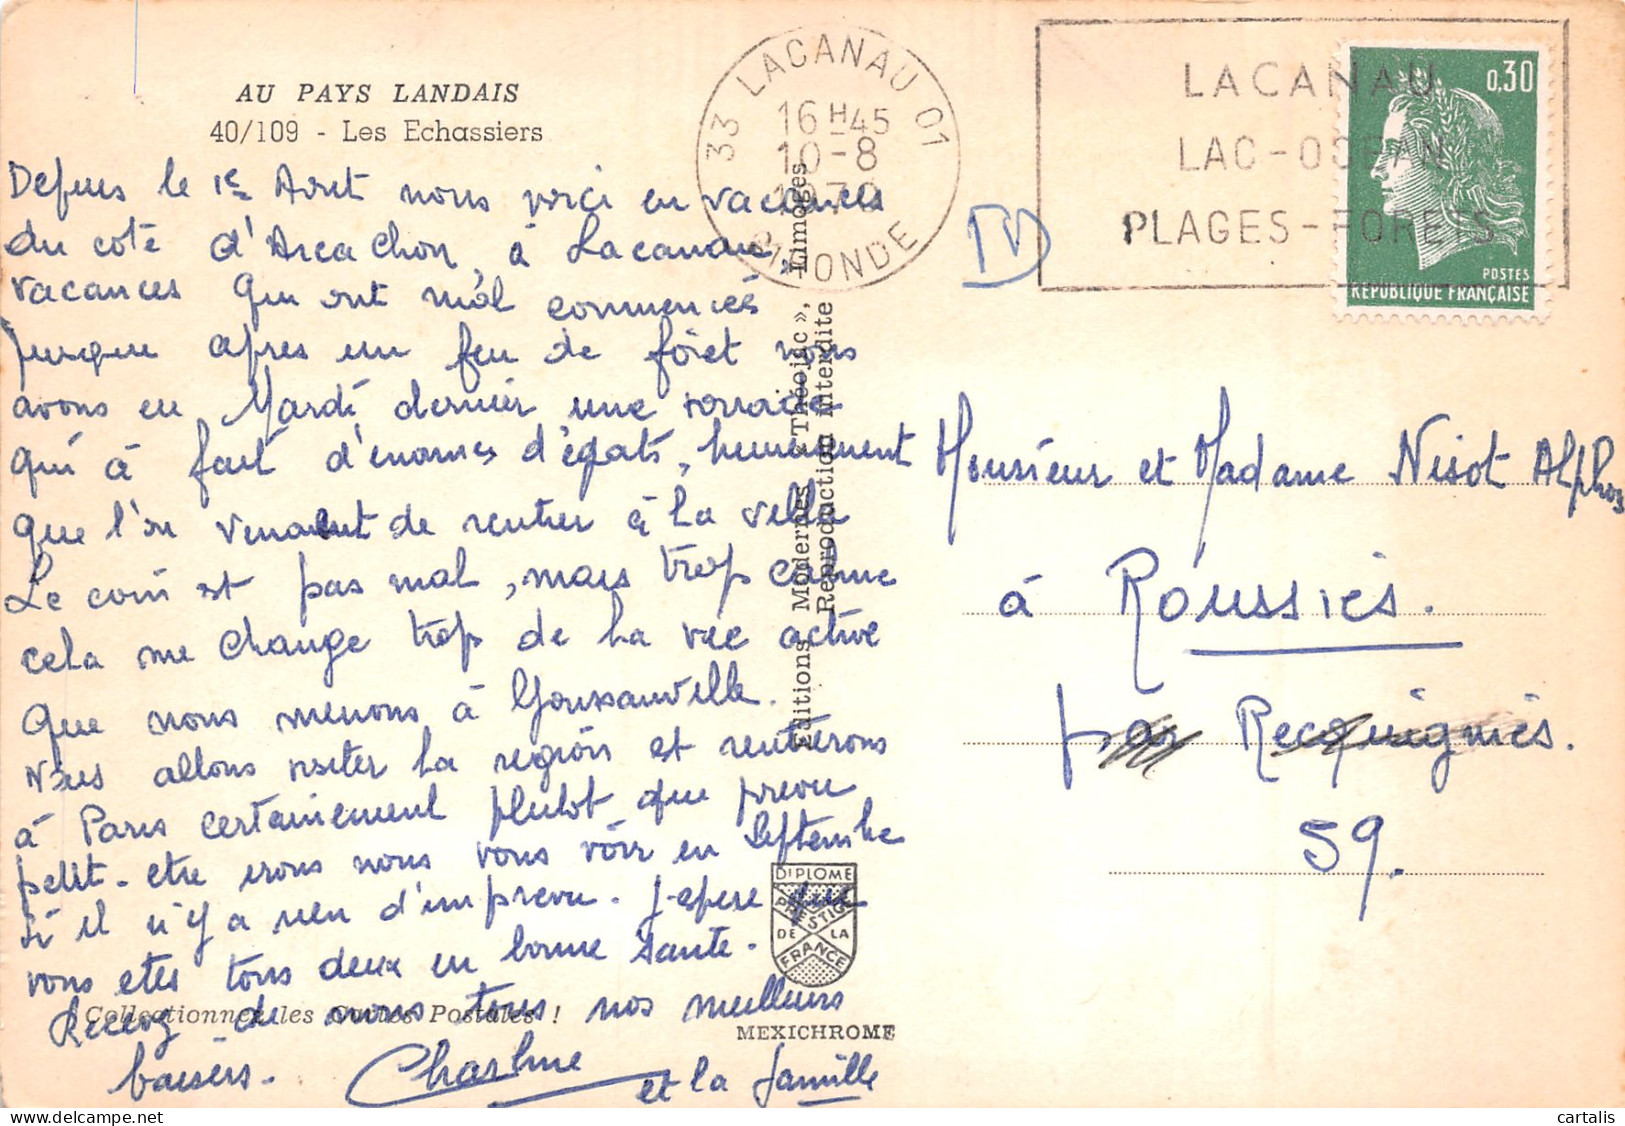 AU PAYS LANDAIS
40/109 - Les Echassiers
Depuis le 1er Aout nous voici en vacances
du coté d'Arcachon, à Lacanau,
vacances qui ont mal commencés
puisque apres un feu de forêt nous
avons eu Mardi dernier une tornade
qui à fait d'enormes dégats, heureusement
que l'on venait de rentrer à la villa
Le coin est pas mal, mais trop calme
cela me change trop de la vie active
que nous menons à Goussainville.
Nous allons visiter la region et rentrerons
à Paris certainement plutot que prevu
petit-etre irons nous vous voir en Septembre
si il n'y a rien d'imprevu. J-espere que
vous etes tous deux en bonne santé.
Recevez de nous tous nos meilleurs
baisers. Charline et la famille
Collectionnez les Cartes Postales !
Editions Modernes «Théojac», Limoges
Reproduction interdite
DIPLOME
PRESTIGE
DE LA
FRANCE
MEXICHROME
33 LACANAU 01
16 H 45
10-8
GIRONDE
LACANAU
LAC-OCEAN
PLAGES-FORETS
0,30
POSTES
REPUBLIQUE FRANÇAISE
Monsieur et Madame Nisot Alphos
à Roussies.
par Recquignies.
59.
cartalis